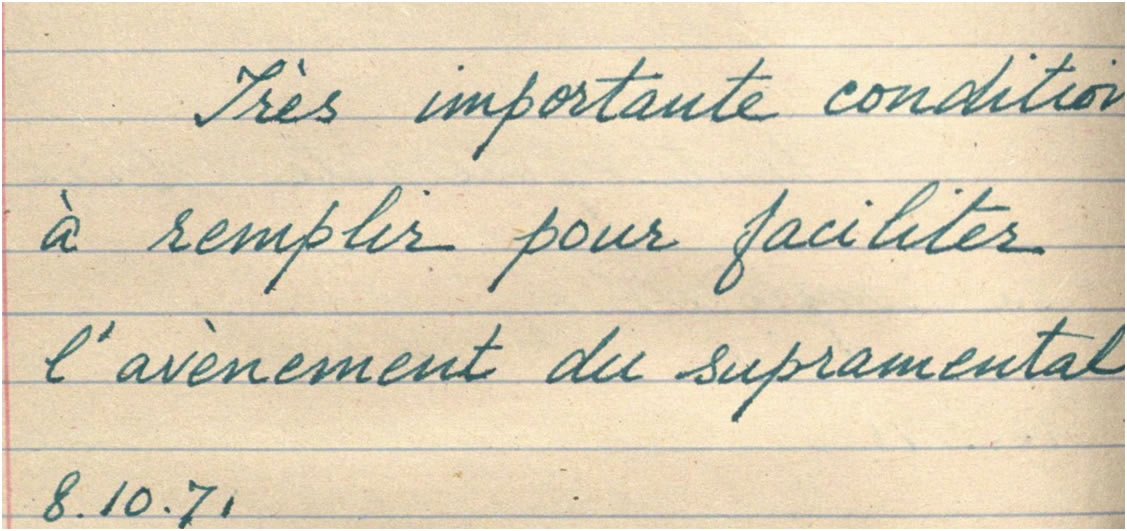 Très importante condition
à remplir pour faciliter
l'avènement du supramental
8.10.71